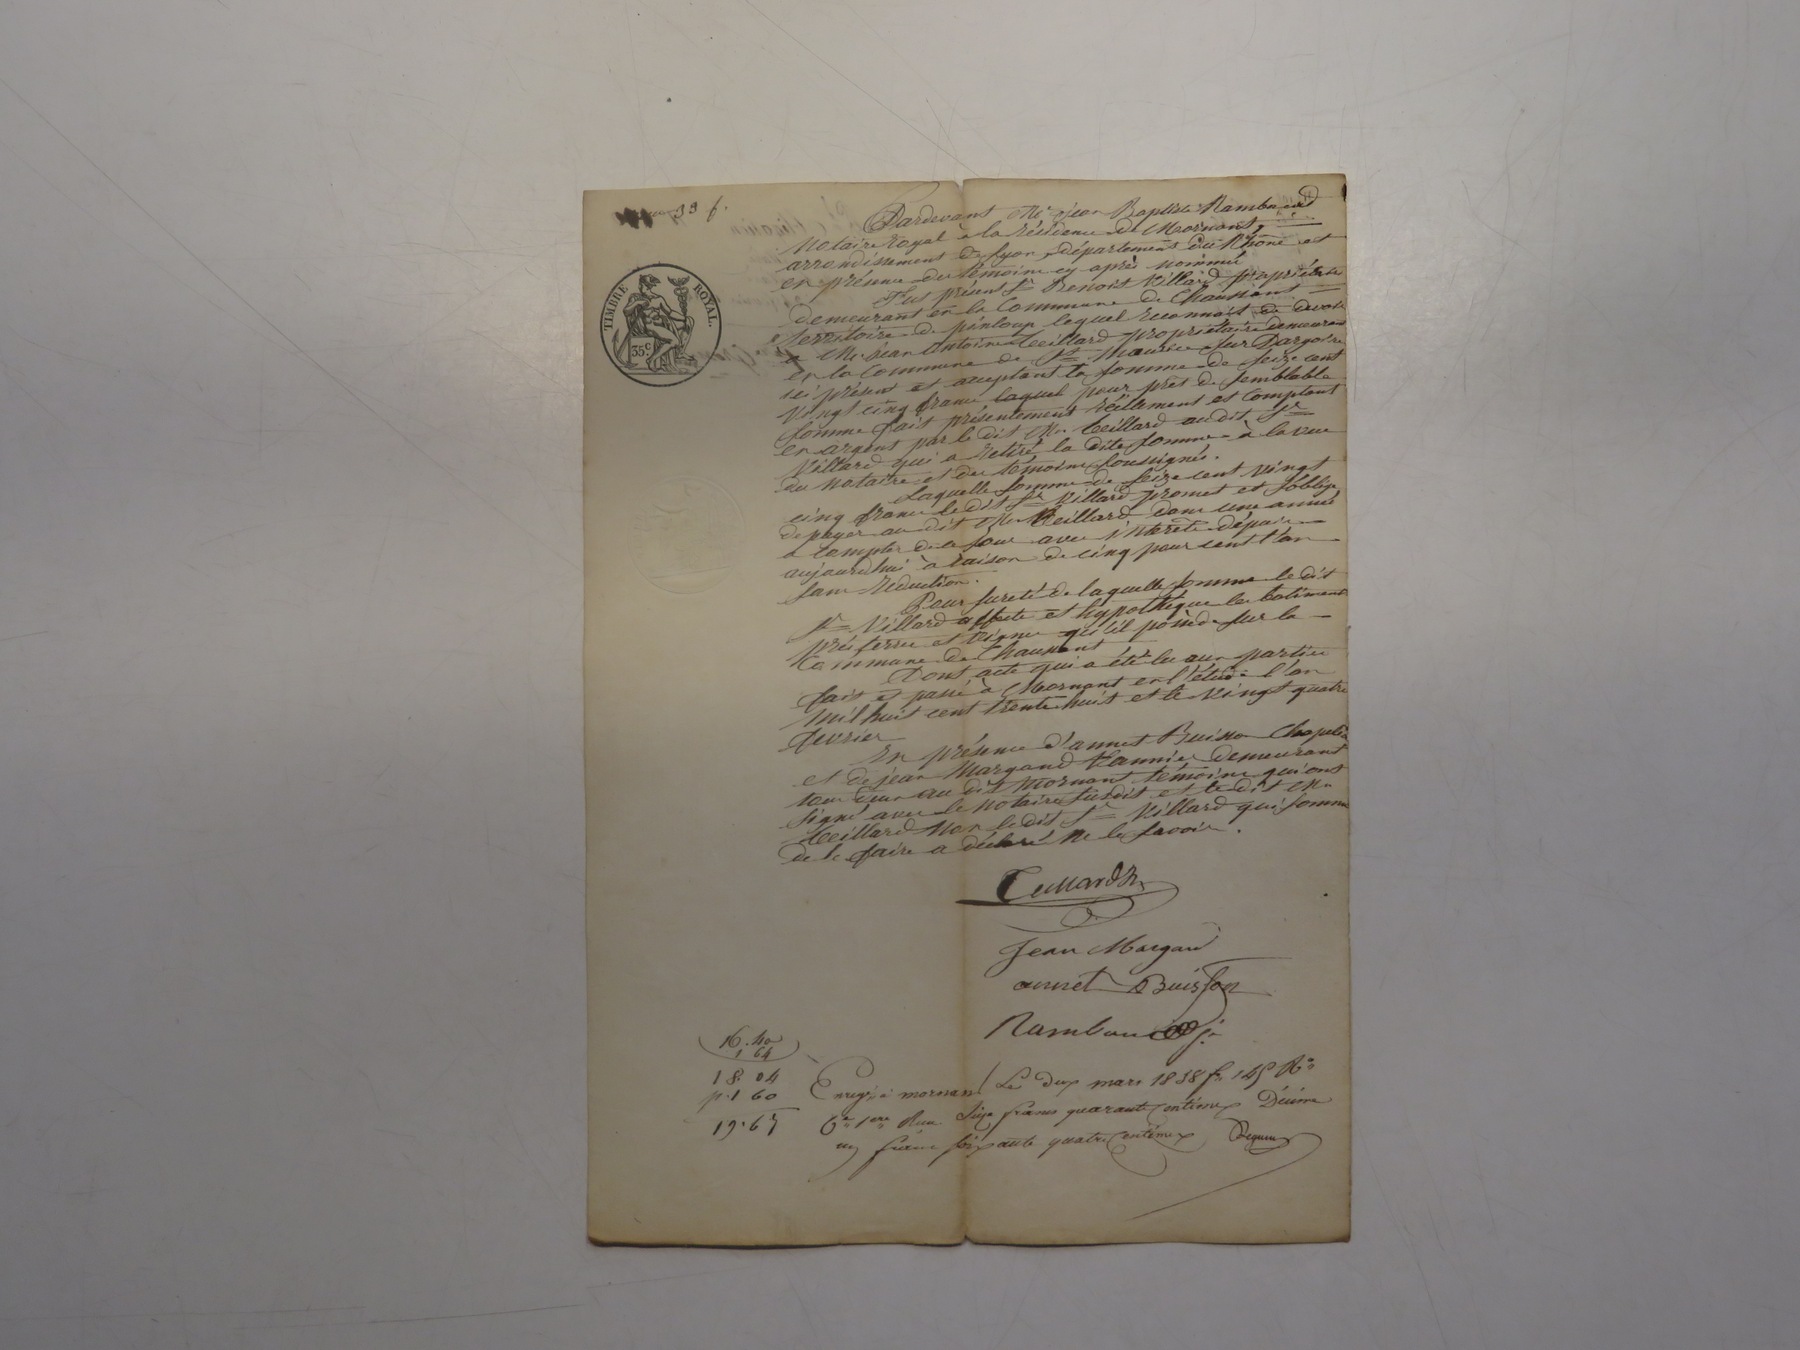 33 f.
TIMBRE ROYAL.
35 c
Pardevant Me Jean Baptiste Rambaud
Notaire Royal à la résidence de Mornant,
arrondissement de Lyon, département du Rhône et
en présence des témoins cy après nommés
Fut présent Sr Benoit Villard propriétaire
demeurant en la Commune de Chaussant
territoire de pinloup lequel reconnoit de devoir
à Mr Jean Antoine Teillard propriétaire demeurant
en la Commune de St Maurice sur Dargoire
ici présent et acceptant la somme de seize cent
vingt cinq francs laquel pour prêt de semblable
somme fait présentement réellement et comptant
en argent par le dit Mr Teillard audit Sr
Villard qui a retiré la dite somme à la vue
du notaire et des témoins soussignés.
Laquelle somme de seize cent vingt
cinq francs le dit Sr Villard promet et s'oblige
de payer au dit Mr Teillard dans une année
à compter de ce jour avec intérêts dépuis
aujourd'hui à raison de cinq pour cent l'an
sans réduction.
Pour sureté de laquelle somme le dit
Sr Villard affecte et hypothéque les batiments
prés terres et vignes qu'il possède sur la
Commune de Chaussant
Dont acte qui a été lu aux parties
fait et passé à Mornant en l'étude l'an
mil huit cent trente huit et le vingt quatre
fevrier
En présence d'annet Buisson Chapelier
et de jean Margand Vannier demeurant
tous deux au dit Mornant témoins qui ont
signé avec le notaire susdit et le dit Mr
Teillard Non le dit Sr Villard qui sommé
de le faire a déclaré ne le savoir.
Teillard
Jean Margand
annet Buisson
Rambaud
16. 40
1 64
18. 04
p. 1 60
19. 65
Enregé à mornant Le deux mars 1838 fo 145 Ro
Ce 1ere Reçu Seize francs quarante Centimes Décime
un franc soixante quatre Centimes